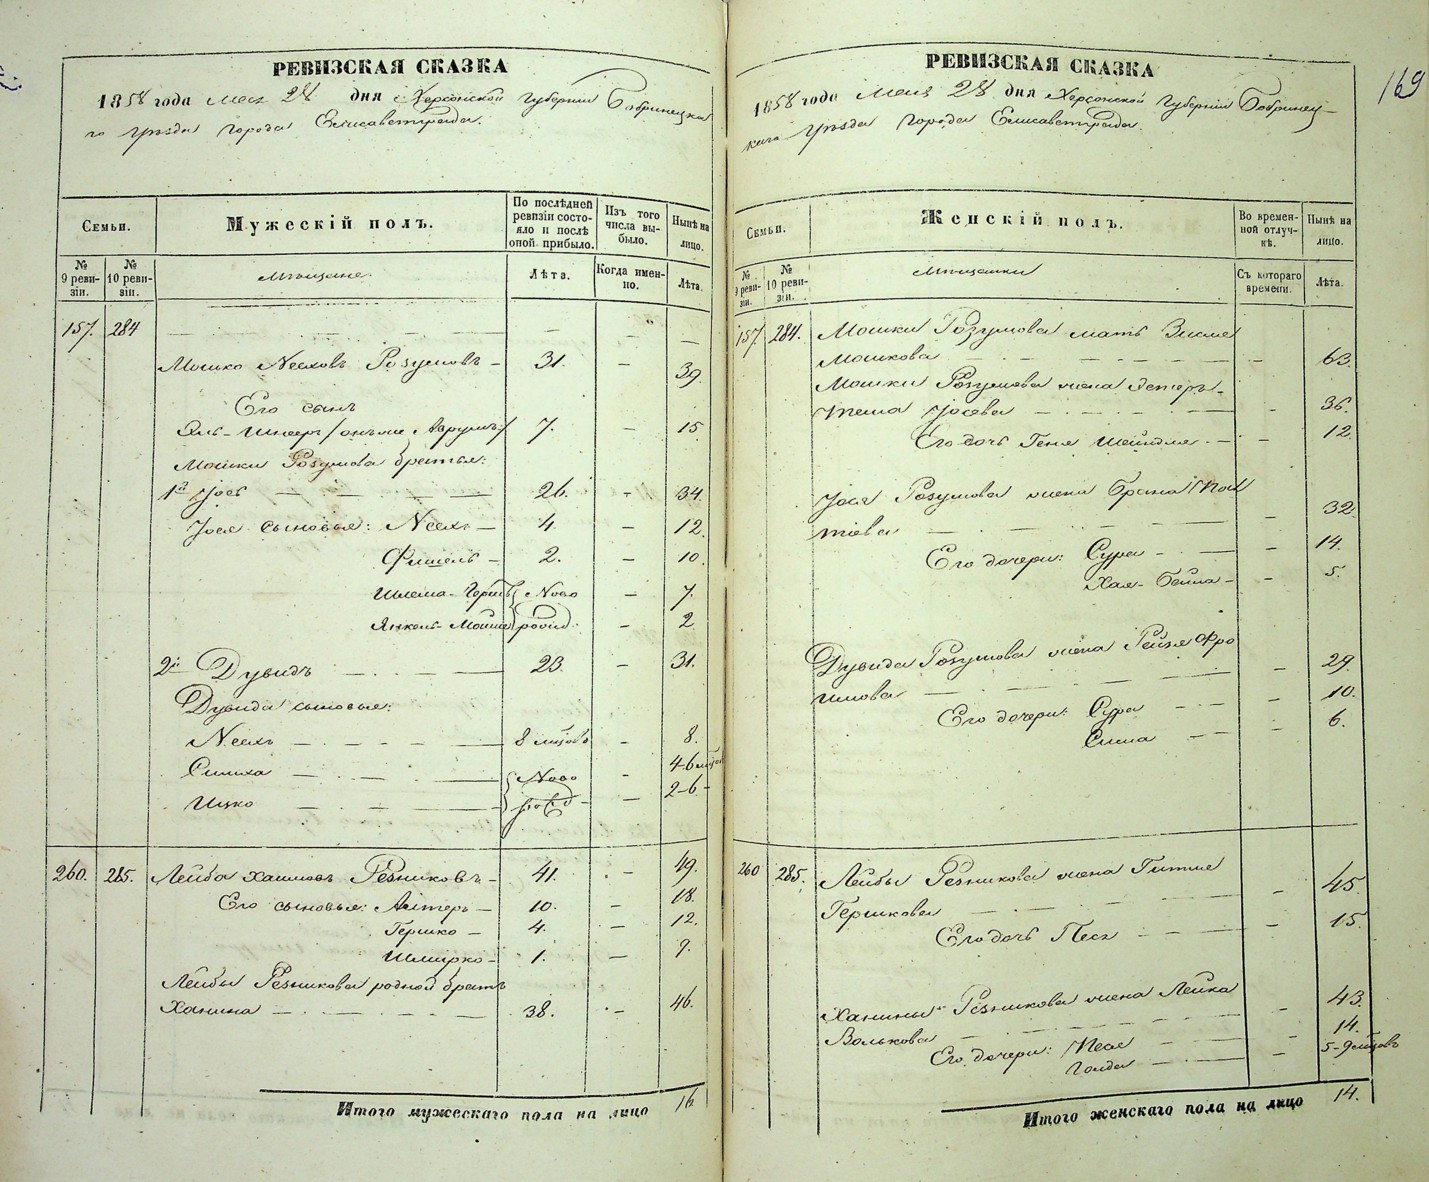 РЕВИЗСКАЯ СКАЗКА
1858 года Мая 28 дня Херсонской Губернии Бобринецка
го уѣзда города Елисаветграда.
Семьи.
Мужескій полъ.
По послѣдней ревизіи состояло и послѣ оной прибыло.
Изъ того числа выбыло.
Нынѣ на лицо.
№ 9 ревизіи.
№ 10 ревизіи.
Мѣщане.
Лѣта.
Когда именно.
Лѣта.
157. 284
Мошко Несховъ Розумовъ — 31. — 39.
Его сынъ
/онъ же Аврумъ/ 7. 15
Мошки Розумова братья:
1й Іось — 26. — 34.
Іося сыновья: Несхъ — 4. — 12.
Фишель — 2. — 10.
Шлема-Гершъ Ново — 7.
Янкель-Мошко рожд. — 2
2й Дувидъ — 23. — 31.
Дувида сыновья:
Несхъ — 8 мѣсов — 8.
Симха — Ново — 4-6 мѣсов
Ицко — рожд — 2-6 -
260. 285. Лейба Хаимовъ Резниковъ — 41. — 49.
Его сыновья: Алтеръ — 10. — 18.
Гершко — 4. — 12.
Шмирко — 1. — 9.
Лейбы Резникова родной братъ
Ханина — 38. — 46.
Итого мужескаго пола на лицо 16.
169
РЕВИЗСКАЯ СКАЗКА
1858 года Мая 28 дня Херсонской Губерніи Бобринец-
каго уѣзда города Елисаветграда.
Семьи.
Женскій полъ.
Во временной отлучкѣ.
Нынѣ на лицо.
№ 9 ревизіи.
№ 10 ревизіи.
Мѣщанки
Съ котораго времени.
Лѣта.
157. 284. Мошки Розумова мать
Мошкова — 63.
Мошки Розумова жена Эстеръ-
Іосева — 36.
Его дочь Геня Шейндля — 12.
Іося Розумова жена Брана
— 32.
Его дочери: Сура — 14.
Хая-Бейла — 5.
Дувида Розумова жена Рейзя Фро
имова — 29.
Его дочери: Сура — 10.
Сима — 6.
260 285. Лейбы Резникова жена Гитля
Гершкова — 45.
Его дочь Песя — 15.
Ханины Резникова жена Лейка
Волькова — 43.
Его дочери: Песя — 14.
Голда — 5-9 мѣсцовъ
Итого женскаго пола на лицо 14.